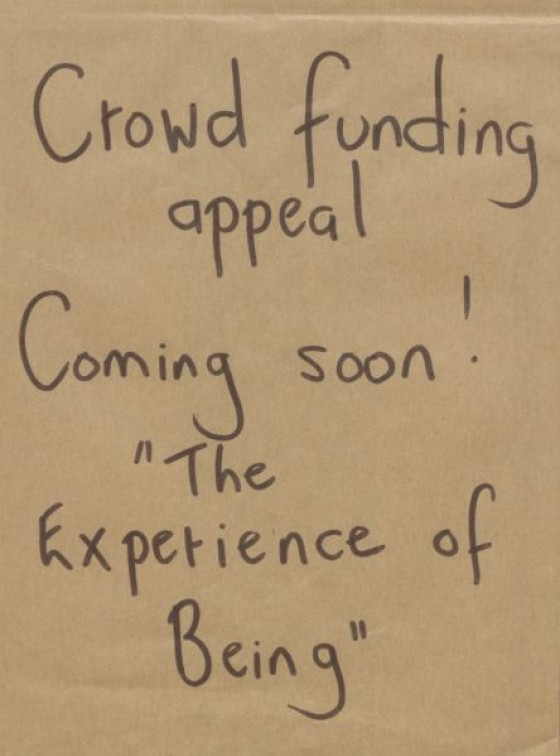 Crowd funding
appeal
Coming soon!
"The
Experience of
Being"